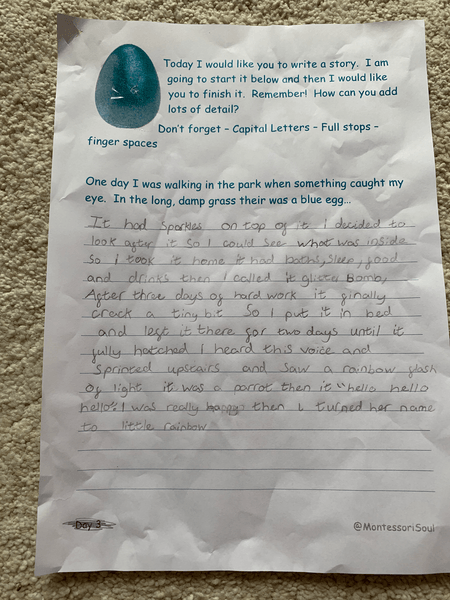 Today I would like you to write a story. I am
going to start it below and then I would like
you to finish it. Remember! How can you add
lots of detail?
Don't forget – Capital Letters – Full stops –
finger spaces
One day I was walking in the park when something caught my
eye. In the long, damp grass their was a blue egg...
It had sparkles on top of it I decided to
look after it so I could see what was inside
so I took it home it had baths, sleep, food
and drinks then I called it glitter bomb,
After three days of hard work it finally
crack a tiny bit So I put it in bed
and left it there for two days until it
fully hatched I heard this voice and
Sprinted upstairs and saw a rainbow flash
of light it was a parrot then it "hello hello
hello" I was really happy then I turned her name
to little rainbow
Day 3
@MontessoriSoul